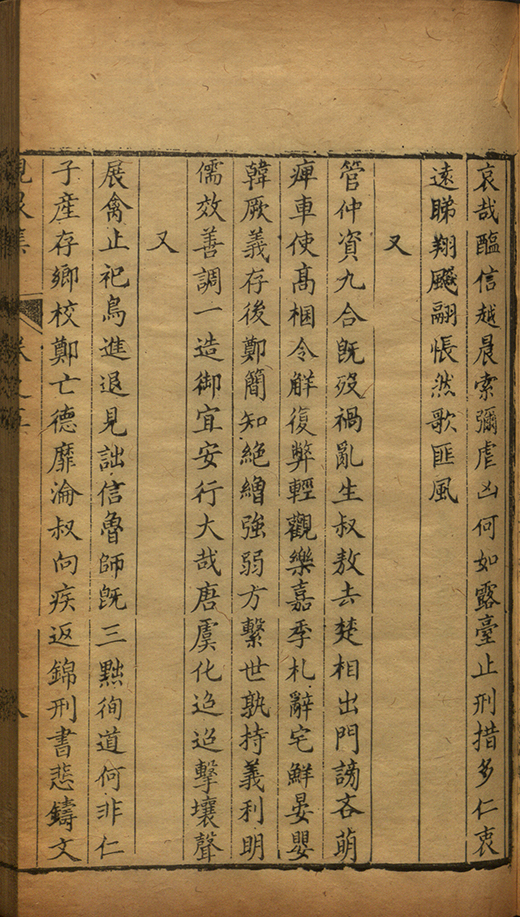 哀哉醢信越晨索彌虐凶何如露臺止刑措多仁衷
遠睇翔飈翮悵然歌匪風
又
管仲資九合既歿禍亂生叔敖去楚相出門謗吝萌
痺車使髙梱令觧復弊輕觀樂嘉季札辭宅鮮晏嬰
韓厥義存後鄭簡知絶繒強弱方繫世孰持義利明
儒效善調一造御宜安行大哉唐虞化迢迢擊壤聲
又
展禽止祀鳥進退見詘信魯師旣三黜徇道何非仁
子産存鄉校鄭亡德靡淪叔向疾返錦刑書悲鑄文